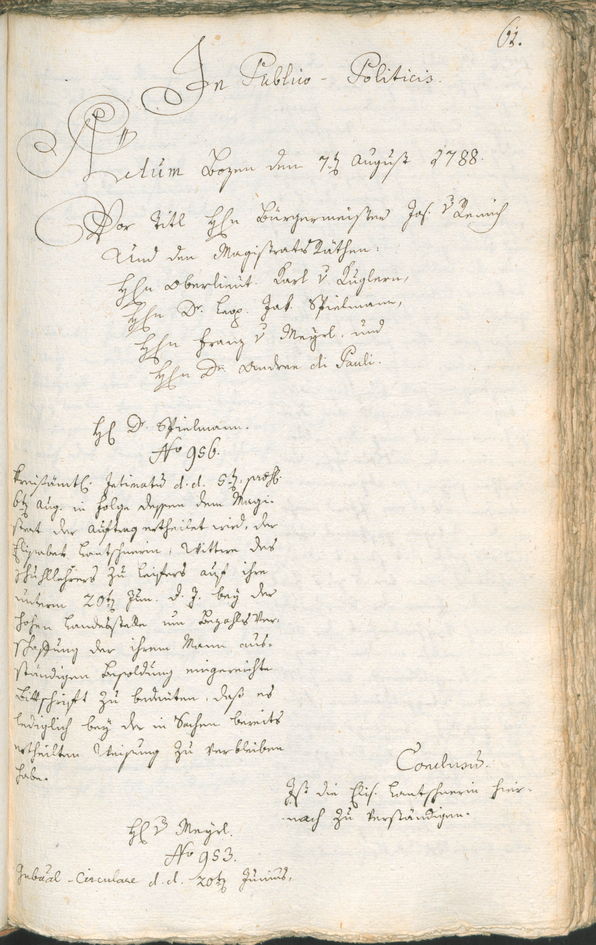 61.
In Publico - Politicis.
Actum Bozen den 7t August 1788.
Vor Titl Hhn Bürgermeister Jos. v Remich
Und den Magistrats Räthen:
Hhn Oberlieut. Karl v Kuglern,
Hhn Dr. Leop. Jak. Spielmann,
Hhn Franz v Mayrl, und
Hhn Dr Andree di Pauli.
HE Dr. Spielmann.
No 956.
Kreisämtl. Intimatum d. d. 5t, præs.
6t Aug. in Folge dessen dem Magi-
strat der Auftrag ertheilet wird, der
Elisabet Lautschnerin, Wittwe des
Schullehrers zu Leifers auf ihre
unterm 20t Jun. d. J. bey der
hohen Landesstelle um Bezahlsver-
schaffung der ihrem Mann aus-
ständigen Besoldung eingereichte
Bittschrift zu bedeuten, daß es
lediglich bey der in Sachen bereits
ertheilten Weisung zu verbleiben
habe.
Conclusum.
Ist die Elis. Lautschnerin hier-
nach zu verständigen.
HE v Mayrl.
No 953.
Gubäal-Circulare d. d. 20t Junius,